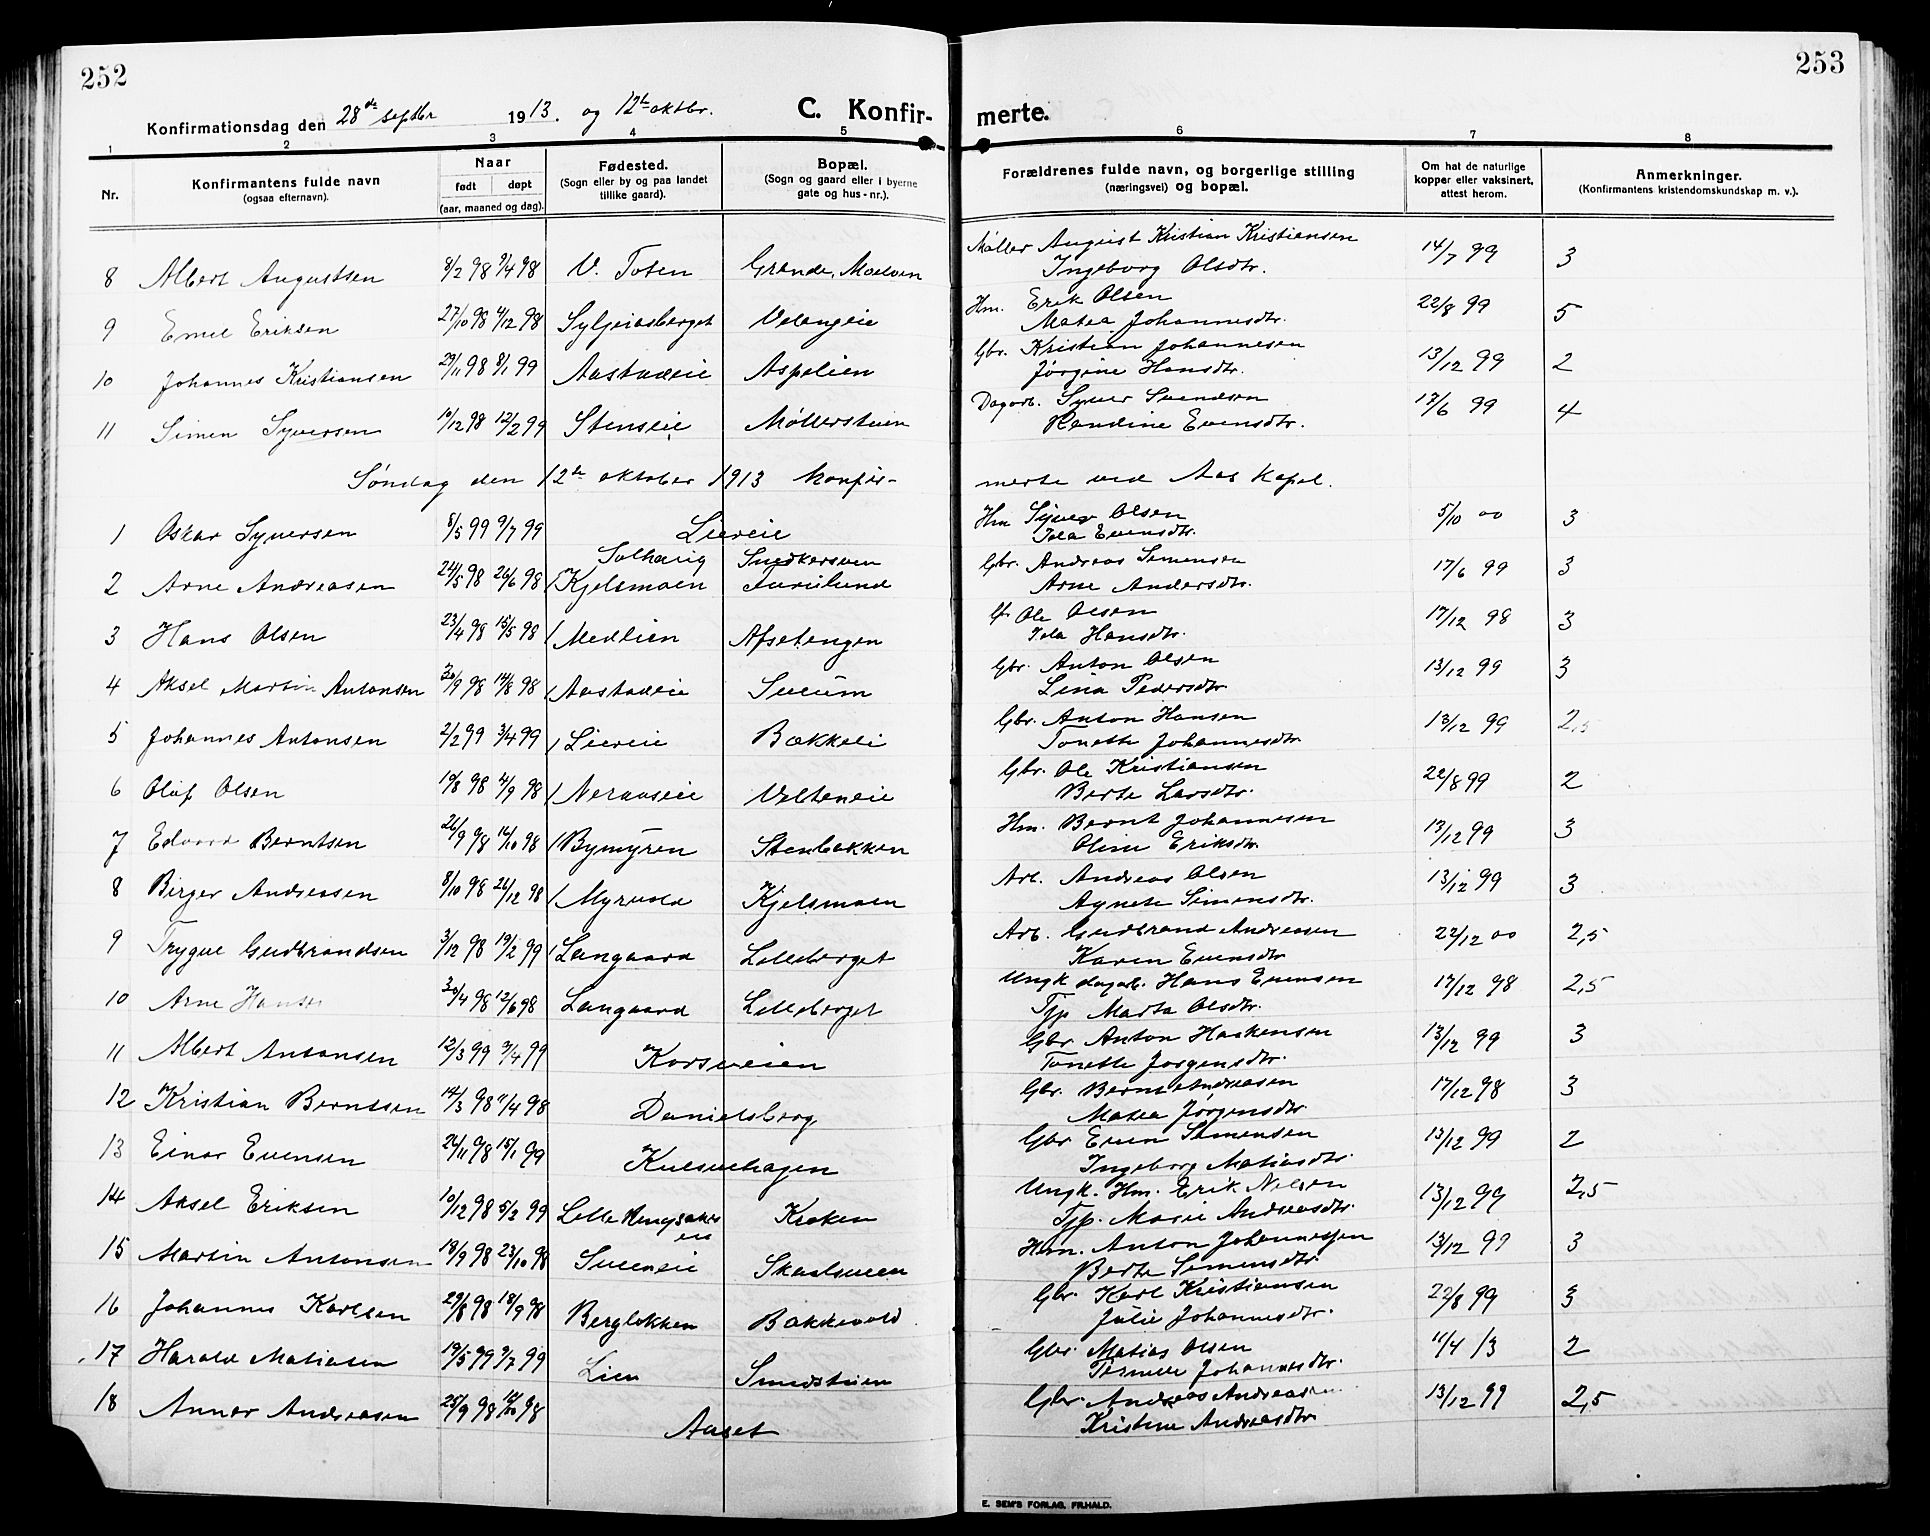 252
253
Konfirmationsdag den 28de septbr 1913. og 12te oktbr.
C. Konfir-
merte.
1 2 3 4 5 6 7 8
Nr.
Konfirmantens fulde navn
(ogsaa efternavn).
Naar
født døpt
(aar, maaned og dag).
Fødested.
(Sogn eller by og paa landet
tillike gaard).
Bopæl.
(Sogn og gaard eller i byerne
gate og hus-nr.).
Forældrenes fulde navn, og borgerlige stilling
(næringsvei) og bopæl.
Om hat de naturlige
kopper eller vaksinert,
attest herom.
Anmerkninger.
(Konfirmantens kristendomskundskap m. v.).
8 Albert Augustsen 8/2 98 9/4 98 V. Toten Grande, Moelven Møller August Kristian Kristiansen 14/7 99 3
Ingeborg Olsdtr.
9 Emil Eriksen 27/10 98 4/12 98 Syljuasberget Velengeie Hm. Erik Olsen 22/8 99 5
Matea Johannesdtr.
10 Johannes Kristiansen 29/11 98 8/1 99 Aastadeie Aspelien Gbr. Kristian Johannesen 13/12 99 2
Jørgine Hansdtr.
11 Simen Syversen 10/12 98 12/2 99 Stenseie Møllerstuen Dagarb. Syver Svendsen 17/6 99 4
Randine Evensdtr.
Søndag den 12te oktober 1913 konfir-
merte ved Aas Kapel.
1 Oskar Syversen 8/5 99 9/7 99 Liereie Hm Syver Olsen 5/10 00 3
Ida Evensdtr.
Solhaug Snedkersven
2 Arne Andreasen 24/5 98 26/6 98 Kjelsmoen Furulund Gbr. Andreas Simensen 17/6 99 3
Arne Andersdtr.
3 Hans Olsen 23/4 98 15/5 98 Medlien Afsetengen Ole Olsen 17/12 98 3
Ida Hansdtr.
4 Aksel Martin Antonsen 98 14/8 98 Aastadeie Sveum Gbr. Anton Olsen 13/12 99 3
Lina Pedersdtr
5 Johannes Antonsen 2/2 99 3/4 99 Liereie Bækkeli Gbr. Anton Hansen 13/12 99 2,5
Tonette Johannesdtr
6 Olaf Olsen 10/8 98 4/9 98 Neraaseie Velteneie Gbr. Ole Kristiansen 22/8 99 2
Berte Larsdtr.
7 Edvard Berntsen 26/9 98 16/10 98 Bymyren Stenbakken Hm. Bernt Johannesen 13/12 99 3
Oline Eriksdtr.
8 Birger Andreasen 8/10 98 26/12 98 Myrvold Kjelsmoen Arb. Andreas Olsen 13/12 99 3
Agnete Simensdtr.
9 Trygve Gudbrandsen 3/12 98 19/2 99 Langaard Lilleberget Arb. Gudbrand Andreasen 22/12 00 2,5
Karen Evensdtr
10 Arne Hansen 30/4 98 12/6 98 Langaard Lilleberget Ungk dagarb. Hans Evensen 17/12 98 2,5
Tjp Marta Olsdtr.
11 Albert Antonsen 12/3 99 9/4 99 Korsveien Gbr. Anton Haakensen 13/12 99 3
Tonette Jørgensdtr.
12 Kristian Berntsen 14/3 98 11/4 98 Danielsberg Gbr. Bernt Andreasen 17/12 98 3
Matea Jørgensdtr.
13 Einar Evensen 26/11 98 15/1 99 Kulsvehagen Gbr Even Simensen 13/12 99 2
Ingeborg Matiasdtr.
14 Aksel Eriksen 10/12 98 5/2 99 Lille Ringsaker Kroken Ungk. Hm. Erik Nilsen 13/12 99 2,5
eie
Tjp. Marie Andreasdtr.
15 Martin Antonsen 18/9 98 23/10 98 Sveeneie Skaalsveen Hm. Anton Johannessen 13/12 99 3
Berte Simensdtr.
16 Johannes Karlsen 29/8 98 18/9 98 Bergløkken Bakkevold Gbr. Karl Kristiansen 22/8 99 3
Julie Johannesdtr.
17 Harald Matiasen 19/5 99 9/7 99 Lien Smedstuen Gbr. Matias Olsen 11/4 13 2
Johannesdtr.
18 Annar Andreasen 25/9 98 98 Aaset Gbr. Andreas Andreasen 13/12 99 2,5
Kristine Andreasdtr
E. SEM'S FORLAG, FR.HALD.